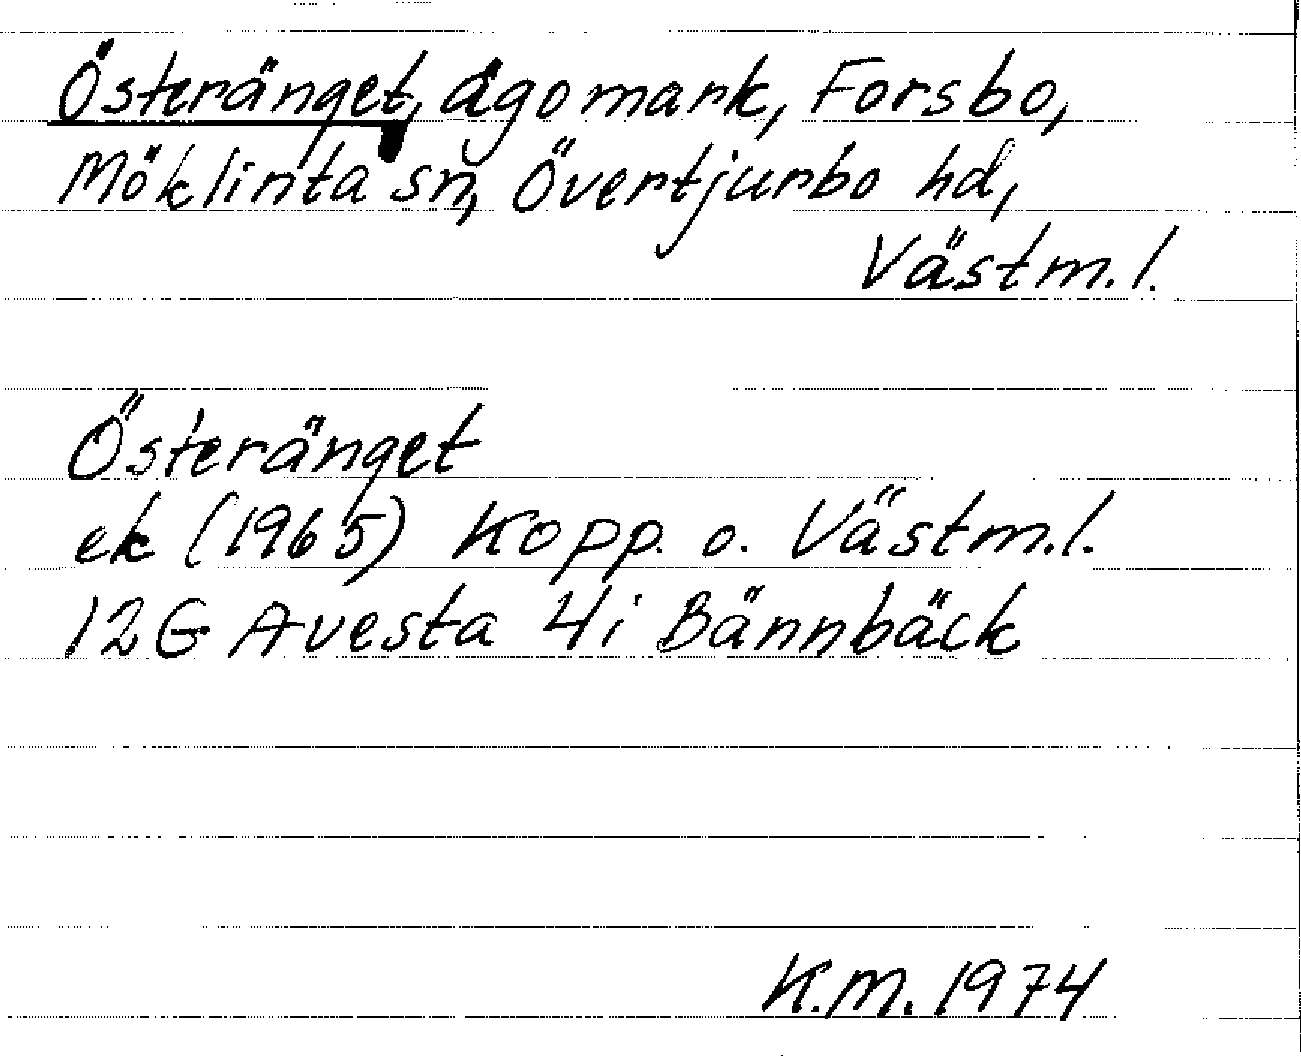 Österänget, ägomark, Forsbo,
Möklinta sn, Övertjurbo hd,
Västm.l.
Österänget
ek (1965) Kopp. o. Västm.l.
12G Avesta 4i Bännbäck
K.M. 1974